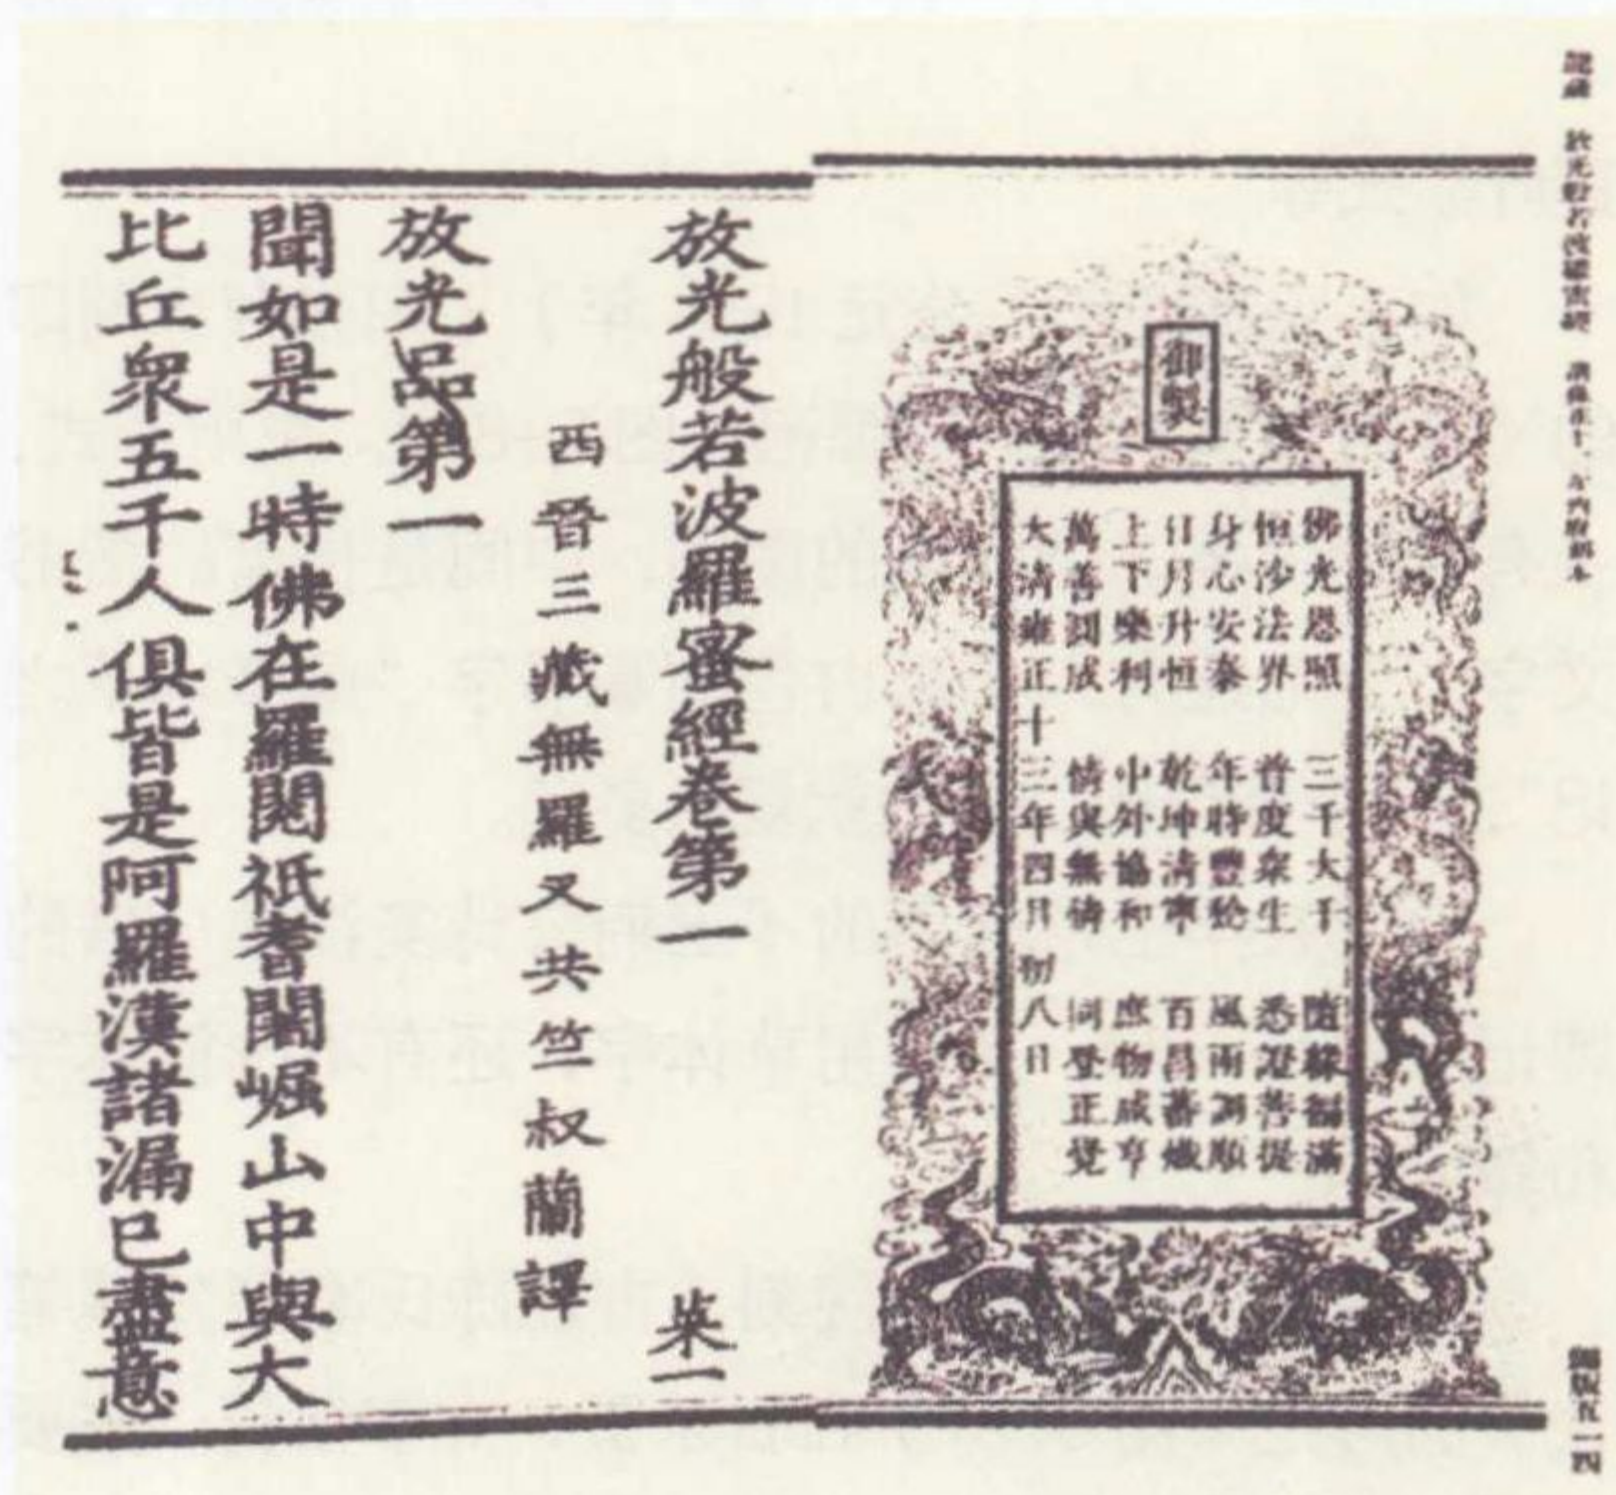 龍藏 放光般若波羅蜜經
御製
佛光恩照 三千大千 隨緣福滿
恒沙法界 普度眾生 悉證菩提
身心安泰 年時豐稔 風雨調順
日月升恒 乾坤清寧 百昌蕃熾
上下樂利 中外協和 庶物咸亨
萬善圓成 情與無情 同登正覺
大清雍正十三年四月初八日
放光般若波羅蜜經卷第一 柰一
西晉三藏無羅叉共竺叔蘭譯
放光品第一
聞如是一時佛在羅閱祇耆闍崛山中與大
比丘眾五千人俱皆是阿羅漢諸漏已盡意